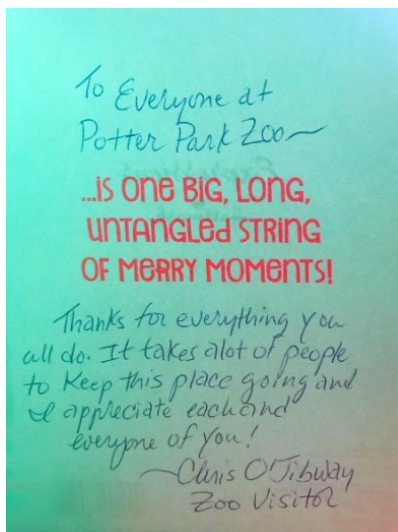 To Everyone at
Potter Park Zoo~
...is one big, long,
untangled string
of merry moments!
Thanks for everything you
all do. It takes alot of people
to Keep this place going and
I appreciate each and
everyone of you!
~Chris O'Jibway
Zoo Visitor